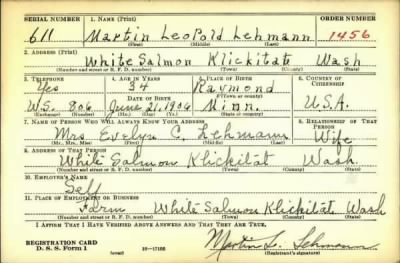 SERIAL NUMBER 1. NAME (Print) ORDER NUMBER
611 Martin Leopold Lehmann 1456
(First) (Middle) (Last)
2. ADDRESS (Print)
White Salmon Klickitat Wash
(Number and street or R. F. D. number) (Town) (County) (State)
3. TELEPHONE 4. AGE IN YEARS 5. PLACE OF BIRTH 6. COUNTRY OF CITIZENSHIP
Yes 34 Raymond
(Town or county)
DATE OF BIRTH
W.S. 806 June 21, 1906 Minn. U.S.A.
(Exchange) (Number) (Mo.) (Day) (Yr.) (State or country)
7. NAME OF PERSON WHO WILL ALWAYS KNOW YOUR ADDRESS 8. RELATIONSHIP OF THAT PERSON
Mrs Evelyn C. Lehmann Wife
(Mr., Mrs., Miss) (First) (Middle) (Last)
9. ADDRESS OF THAT PERSON
White Salmon Klickitat Wash.
(Number and street or R. F. D. number) (Town) (County) (State)
10. EMPLOYER'S NAME
Self
11. PLACE OF EMPLOYMENT OR BUSINESS
Farm White Salmon Klickitat Wash
(Number and street or R. F. D. number) (Town) (County) (State)
I AFFIRM THAT I HAVE VERIFIED ABOVE ANSWERS AND THAT THEY ARE TRUE.
REGISTRATION CARD
D. S. S. Form 1 (over) 16—17105 Martin L. Lehmann